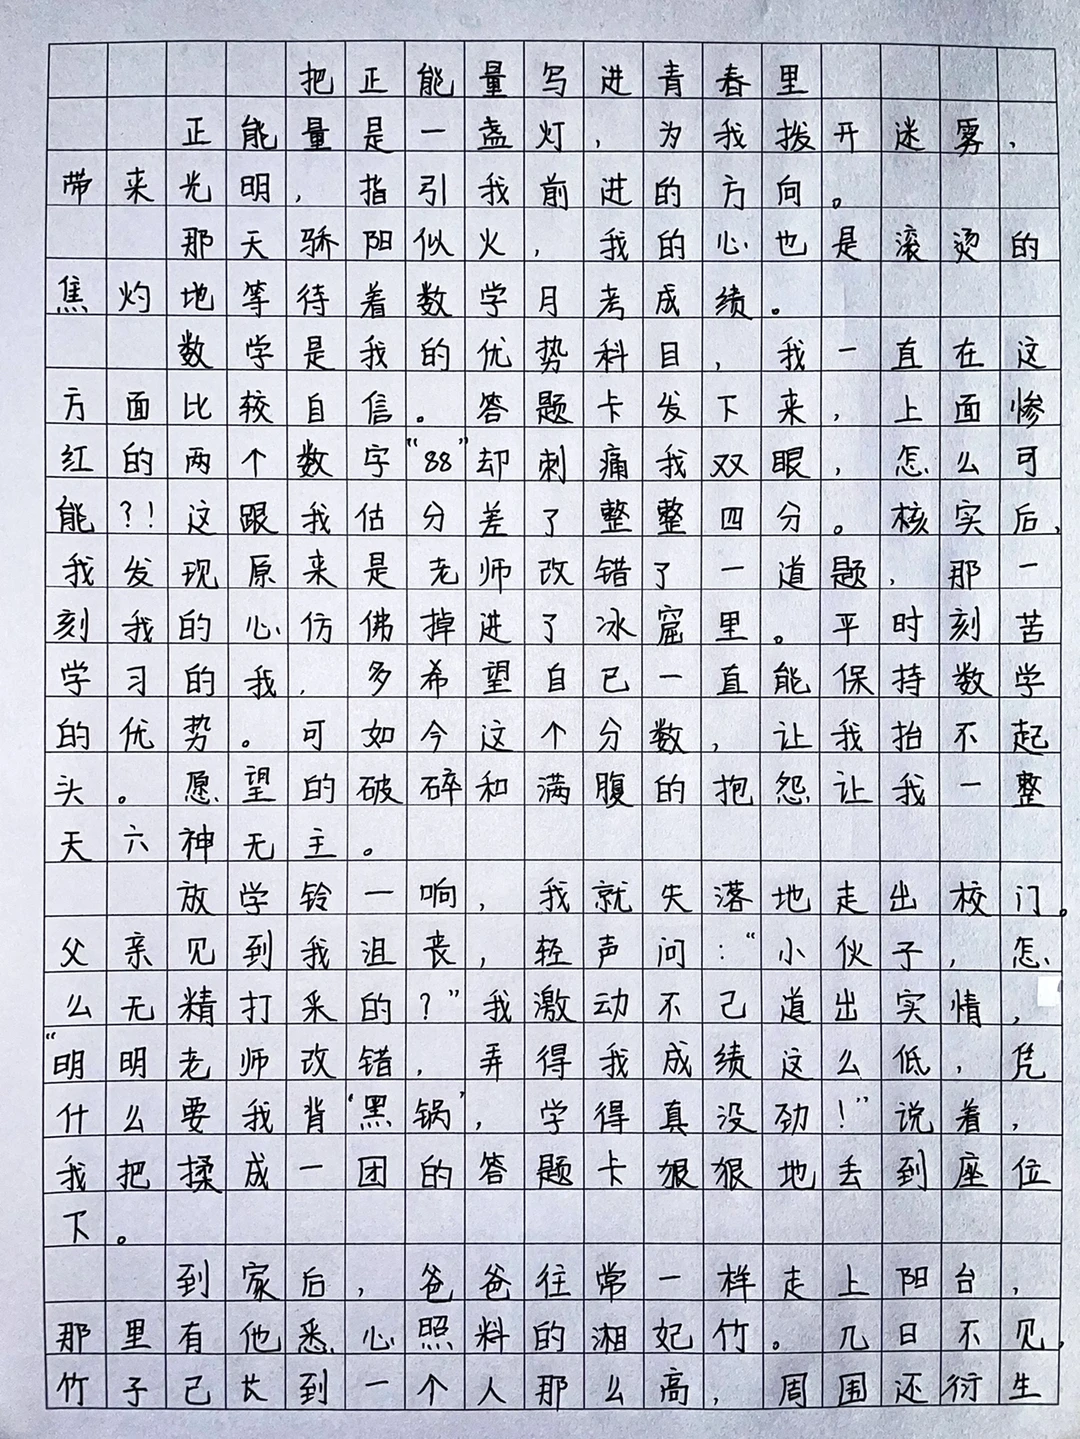 把正能量写进青春里
正能量是一盏灯，为我拨开迷雾，
带来光明，指引我前进的方向。
那天骄阳似火，我的心也是滚烫的
焦灼地等待着数学月考成绩。
数学是我的优势科目，我一直在这
方面比较自信。答题卡发下来，上面惨
红的两个数字“88”却刺痛我双眼，怎么可
能？！这跟我估分差了整整四分。核实后，
我发现原来是老师改错了一道题，那一
刻我的心仿佛掉进了冰窟里。平时刻苦
学习的我，多希望自己一直能保持数学
的优势。可如今这个分数，让我抬不起
头。愿望的破碎和满腹的抱怨让我一整
天六神无主。
放学铃一响，我就失落地走出校门。
父亲见到我沮丧，轻声问：“小伙子，怎
么无精打采的？”我激动不己道出实情，
“明明老师改错，弄得我成绩这么低，凭
什么要我背‘黑锅’，学得真没劲！”说着，
我把揉成一团的答题卡狠狠地丢到座位
下。
到家后，爸爸往常一样走上阳台，
那里有他悉心照料的湘妃竹。几日不见，
竹子己长到一个人那么高，周围还衍生